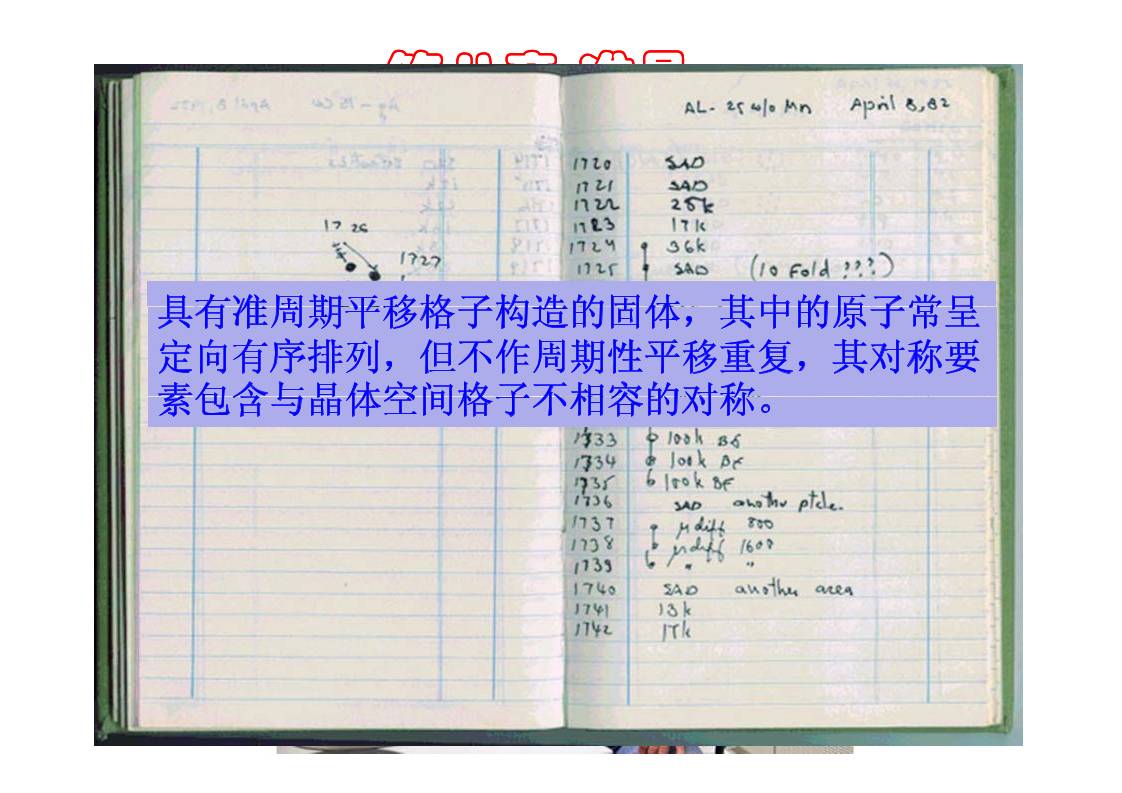 AL- 25 w/o Mn April 8, 82
1720 SAD
1721 SAD
1722 25k
1723 17k
1724 36k
1725 SAD (10 Fold ???)
1726
1727
具有准周期平移格子构造的固体，其中的原子常呈
定向有序排列，但不作周期性平移重复，其对称要
素包含与晶体空间格子不相容的对称。
1733 100k BF
1734 100k BF
1735 100k BF
1736 SAD another ptcle.
1737 μdiff 800
1738 μdiff 1600
1739 " "
1740 SAD another area
1741 13k
1742 17k